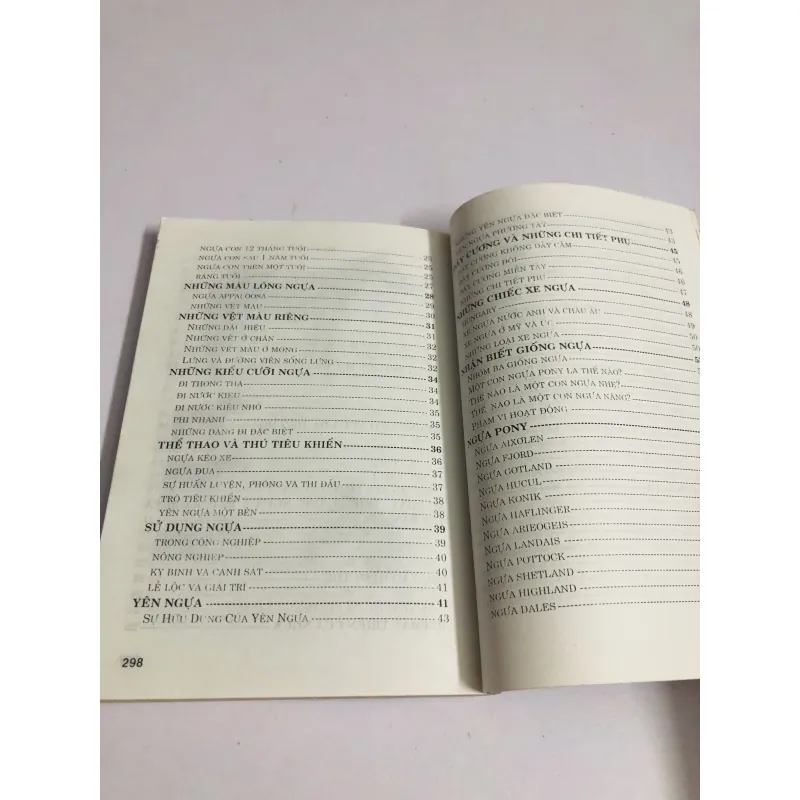 NGỰA CON 12 THÁNG TUỔI 23
NGỰA CON SAU 1 NĂM TUỔI 25
NGỰA CON TRÊN MỘT TUỔI 25
RĂNG TUỔI 25
NHỮNG MÀU LÔNG NGỰA 27
NGỰA APPALOOSA 28
NHỮNG VẾT MÀU 29
NHỮNG VỆT MÀU RIÊNG 30
NHỮNG DẤU HIỆU 31
NHỮNG VỆT Ở CHÂN 31
NHỮNG VỆT MÀU Ở MÓNG 32
LƯNG VÀ ĐƯỜNG VIỀN SỐNG LƯNG 32
NHỮNG KIỂU CƯỠI NGỰA 34
ĐI THONG THẢ 34
ĐI NƯỚC KIỆU 34
ĐI NƯỚC KIỆU NHỎ 34
PHI NHANH 35
NHỮNG DÁNG ĐI ĐẶC BIỆT 35
THỂ THAO VÀ THÚ TIÊU KHIỂN 36
NGỰA KÉO XE 36
NGỰA ĐUA 37
SỰ HUẤN LUYỆN, PHÓNG VÀ THI ĐẤU 37
TRÒ TIÊU KHIỂN 38
YÊN NGỰA MỘT BÊN 38
SỬ DỤNG NGỰA 39
TRONG CÔNG NGHIỆP 39
NÔNG NGHIỆP 40
KỴ BINH VÀ CẢNH SÁT 40
LỄ LỘC VÀ GIẢI TRÍ 41
YÊN NGỰA 41
SỰ HỮU DỤNG CỦA YÊN NGỰA 43
298
NHỮNG YÊN NGỰA ĐẶC BIỆT 43
YÊN NGỰA PHƯƠNG TÂY 43
DÂY CƯƠNG VÀ NHỮNG CHI TIẾT PHỤ 45
DÂY CƯƠNG KHÔNG DÂY CẰM 45
DÂY CƯƠNG ĐÔI 46
DÂY CƯƠNG MIỀN TÂY 46
NHỮNG CHI TIẾT PHỤ 47
NHỮNG CHIẾC XE NGỰA 48
HUNGARY 48
XE NGỰA NƯỚC ANH VÀ CHÂU ÂU 49
XE NGỰA Ở MỸ VÀ ÚC 50
NHỮNG LOẠI XE NGỰA 50
NHẬN BIẾT GIỐNG NGỰA
NHÓM BA GIỐNG NGỰA
MỘT CON NGỰA PONY LÀ THẾ NÀO?
THẾ NÀO LÀ MỘT CON NGỰA NHẸ?
THẾ NÀO LÀ MỘT CON NGỰA NẶNG?
PHẠM VI HOẠT ĐỘNG
NGỰA PONY
NGỰA AIXƠLEN
NGỰA FJORD
NGỰA GOTLAND
NGỰA HUCUL
NGỰA KONIK
NGỰA HAFLINGER
NGỰA ARIEOGEIS
NGỰA LANDAIS
NGỰA POTTOCK
NGỰA SHETLAND
NGỰA HIGHLAND
NGỰA DALES